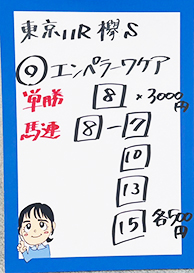 東京11R 欅S
⑨エンペラーワケア
単勝 8 × 3000円
馬連 8-7
10
13
15 各500円